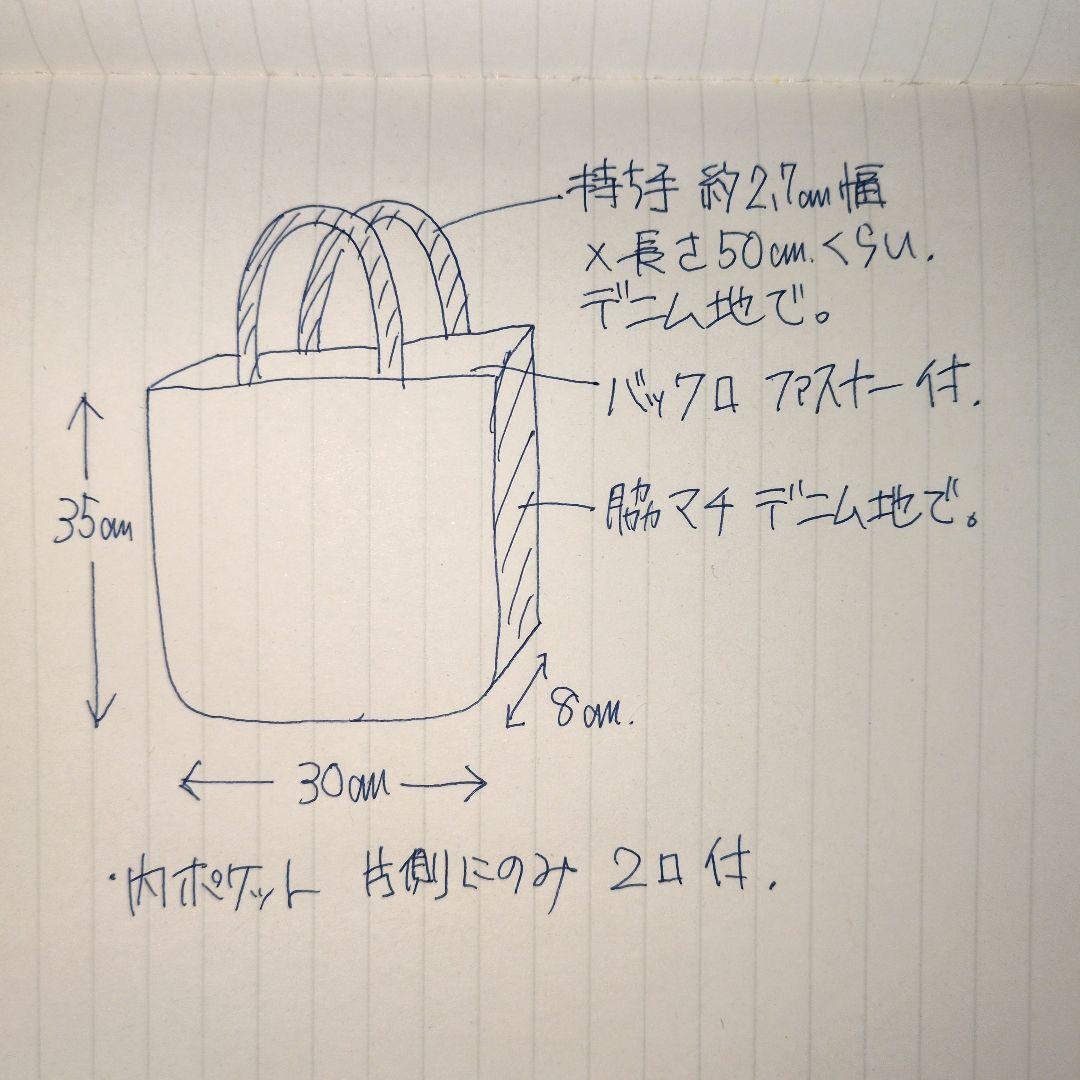 持ち手 約2.7cm幅
×長さ50cm.くらい.
デニム地で。
バック口 ファスナー付.
35cm
脇マチ デニム地で。
8cm.
30cm
・内ポケット 片側にのみ 2口付.